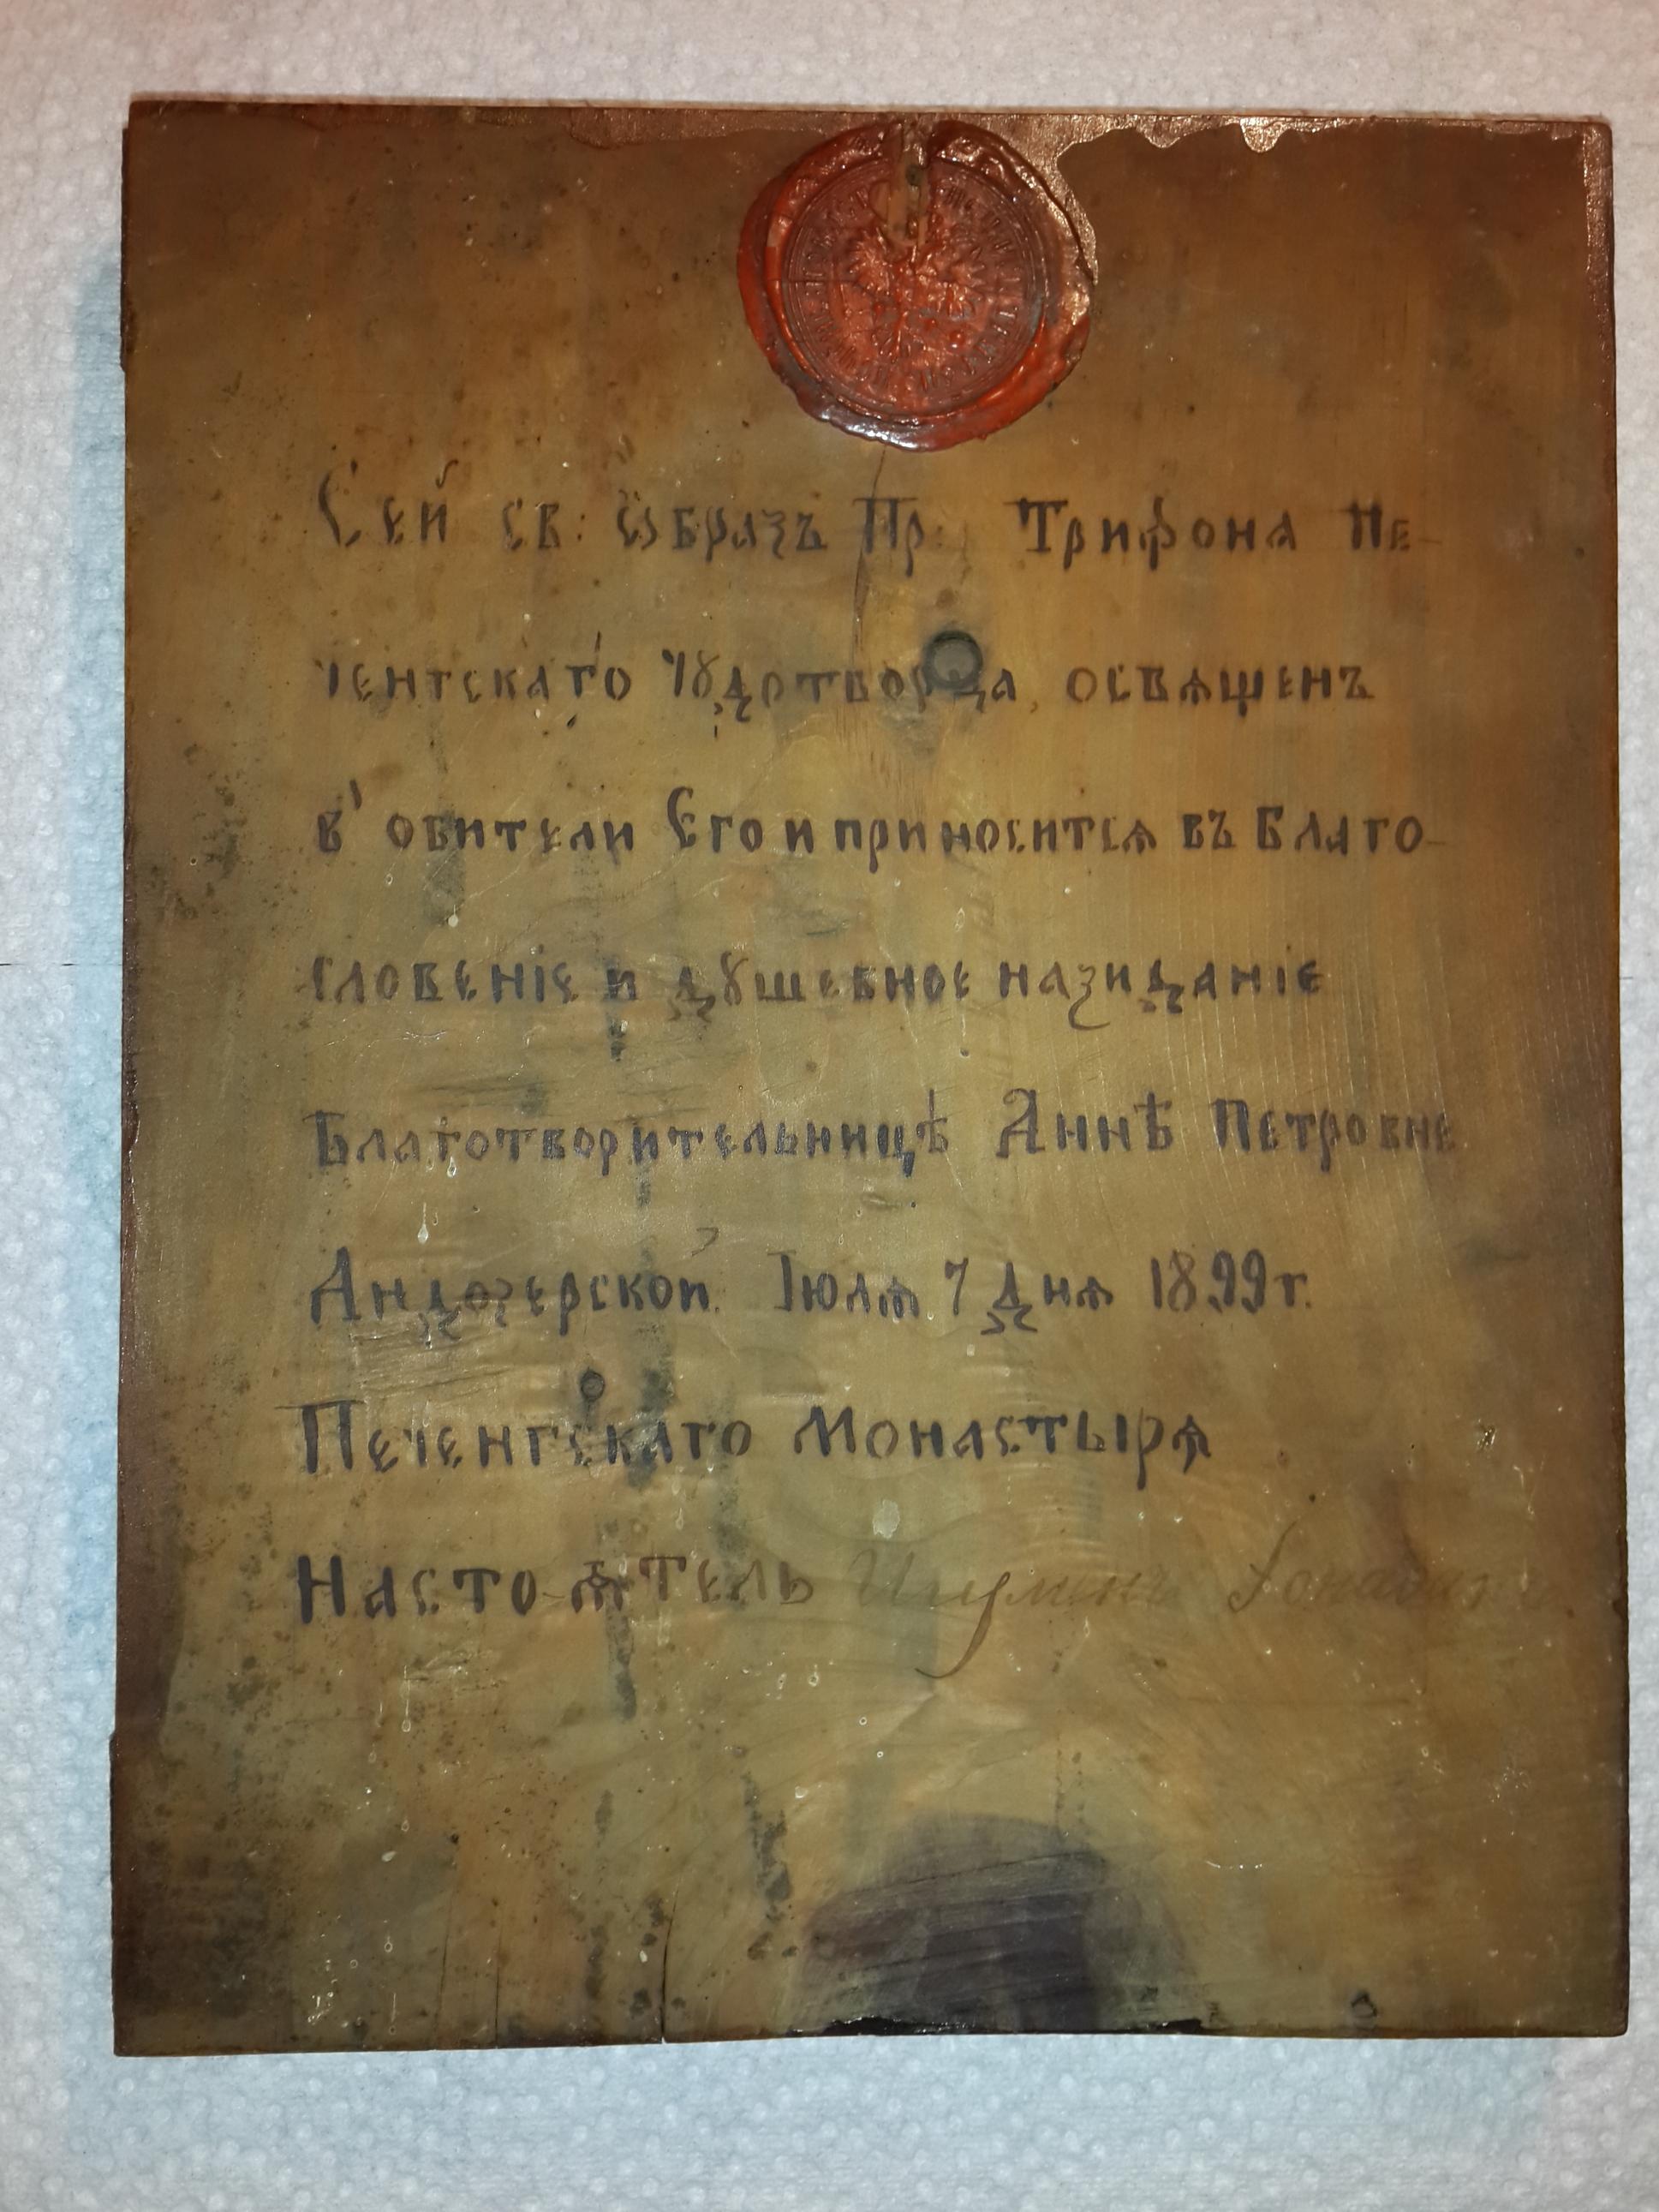 Сей св: Ѡбразъ Пр: Трифона Пе-
ченгскаго Чꙋдотворца, освѧщенъ
в' обители Его и приноситсѧ въ Благо-
словеніе и дꙋшевное назиданіе
Благотворительницѣ Аннѣ Петровне
Андозерской. Іюлѧ 7 Днѧ 1899 г.
Печенгскаго Монастырѧ
Насто-ѧтель Игуменъ